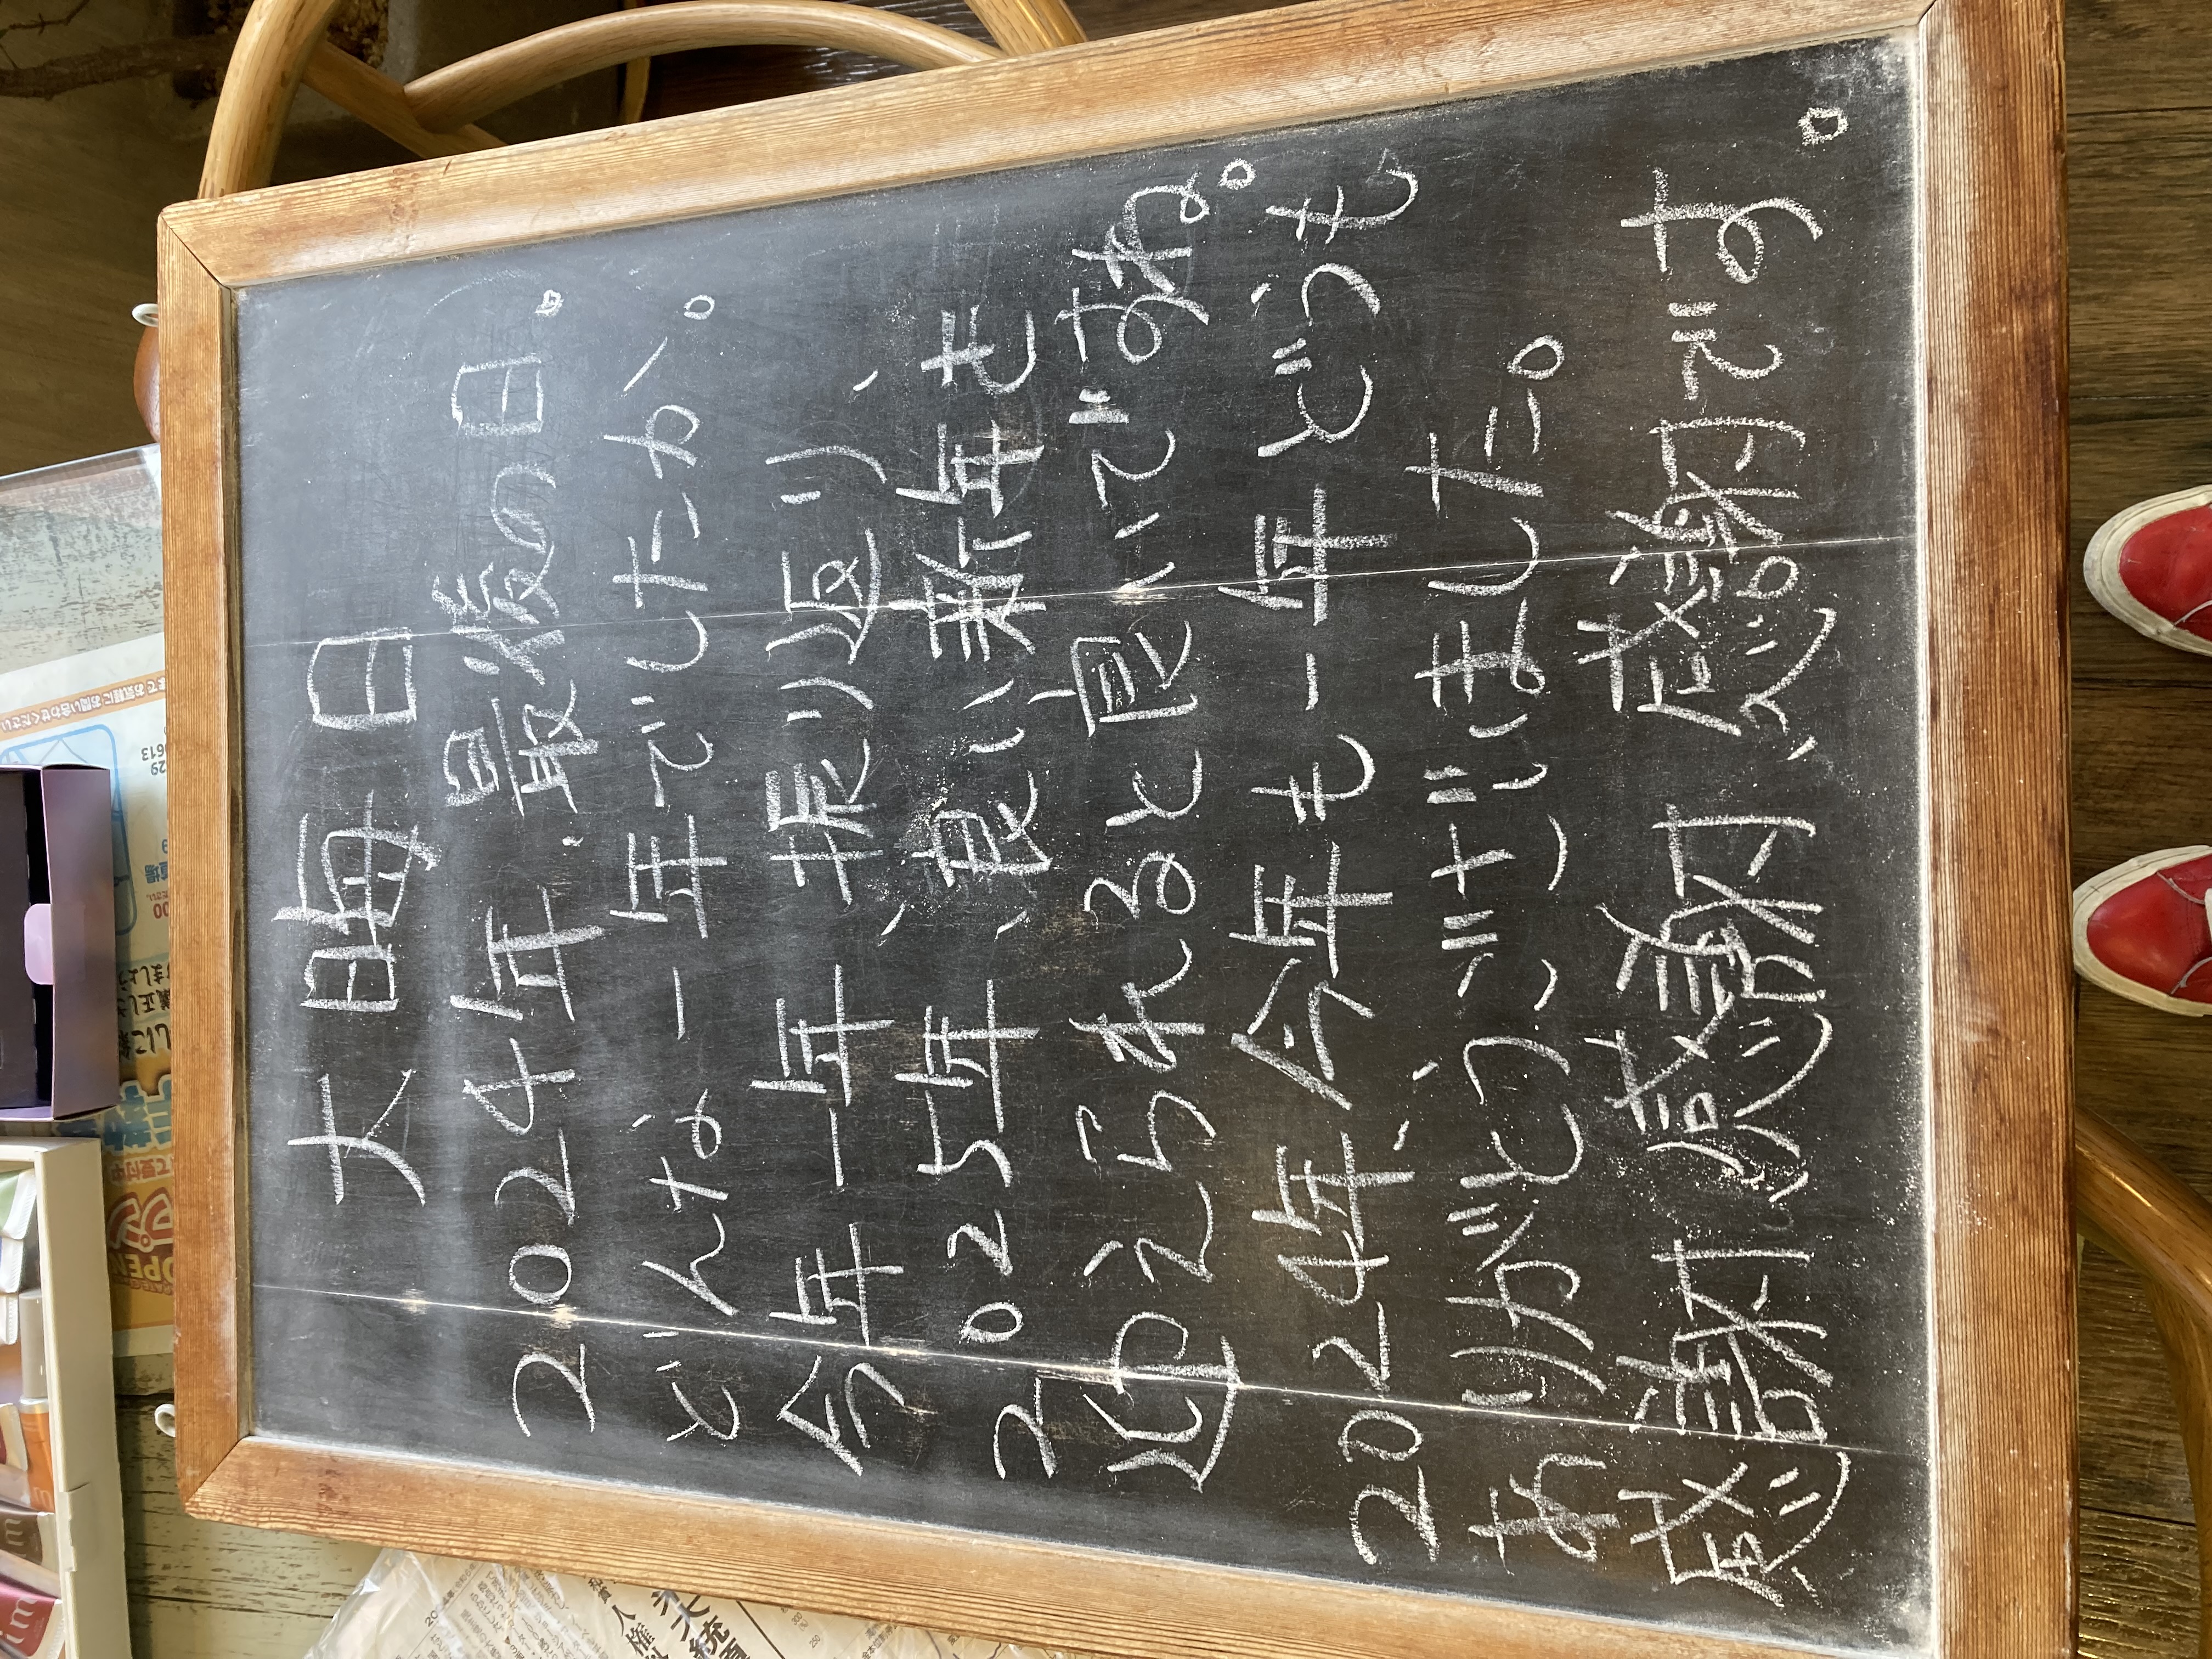 大晦日
2024年.最後の日。
どんな一年でしたか、。
今年一年、振り返り、
2025年、良い、新年も
迎えられると良いですね。
2024年、今年も一年どうも
ありがとうございました。
感謝感謝感謝です。